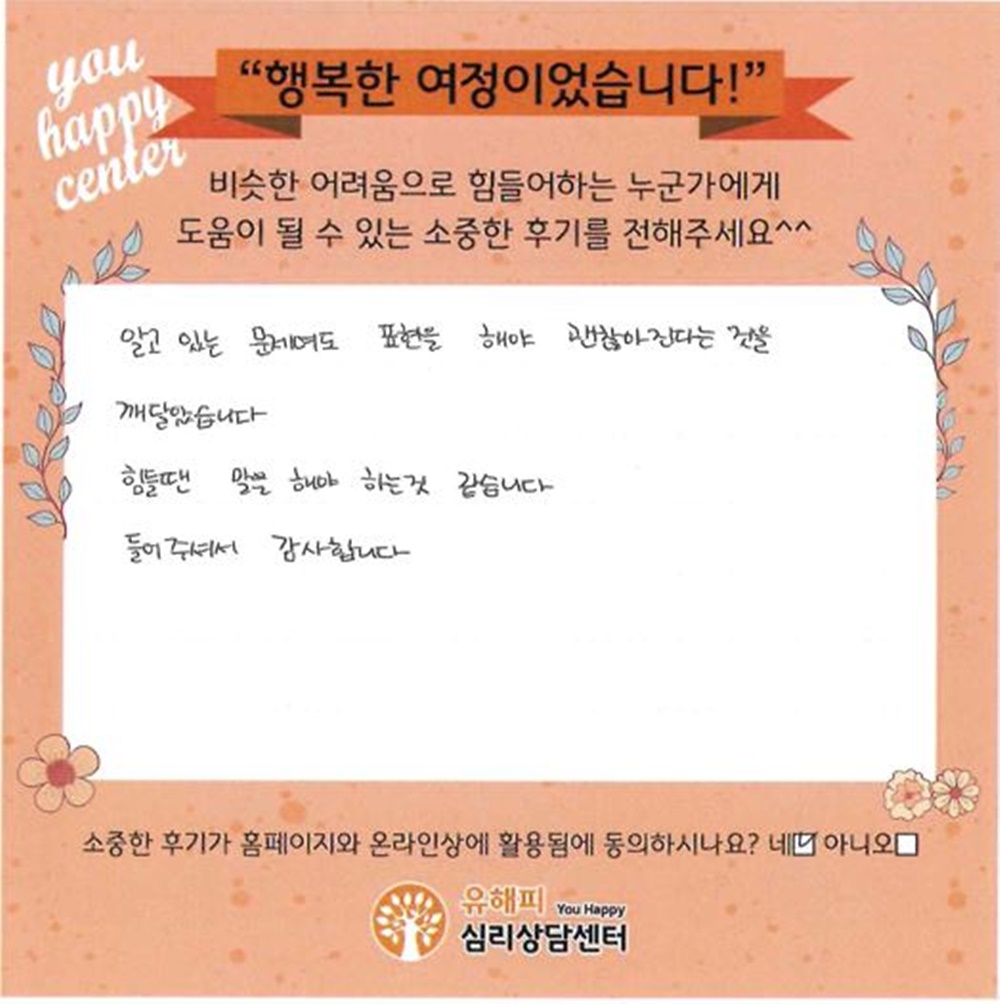 you
happy
center
“행복한 여정이었습니다!”
비슷한 어려움으로 힘들어하는 누군가에게
도움이 될 수 있는 소중한 후기를 전해주세요^^
알고 있는 문제여도 표현을 해야 괜찮아진다는 것을
깨달았습니다
힘들땐 말을 해야 하는것 같습니다
들어주셔서 감사합니다
소중한 후기가 홈페이지와 온라인상에 활용됨에 동의하시나요? 네☑ 아니오☐
유해피 You Happy
심리상담센터